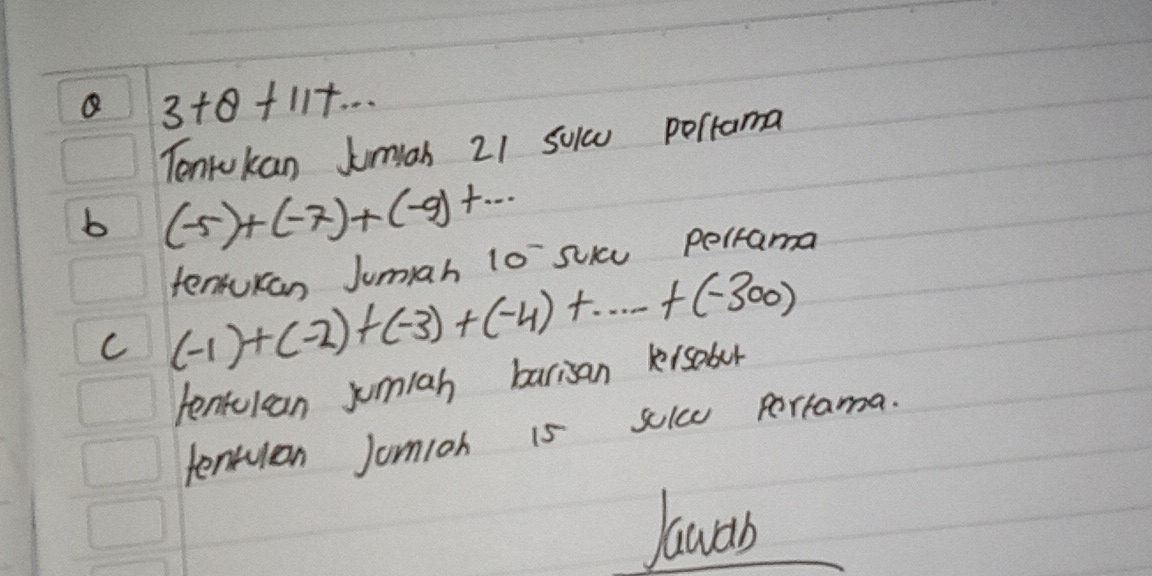 a 3+8+11+...
Tentukan Jumlah 21 suku pertama
b (-5)+(-7)+(-9)+...
tentukan Jumlah 10 suku pertama
c (-1)+(-2)+(-3)+(-4)+.....+(-300)
tentukan jumlah barisan tersebut
tentukan Jumlah 15 suku pertama.
Jawab